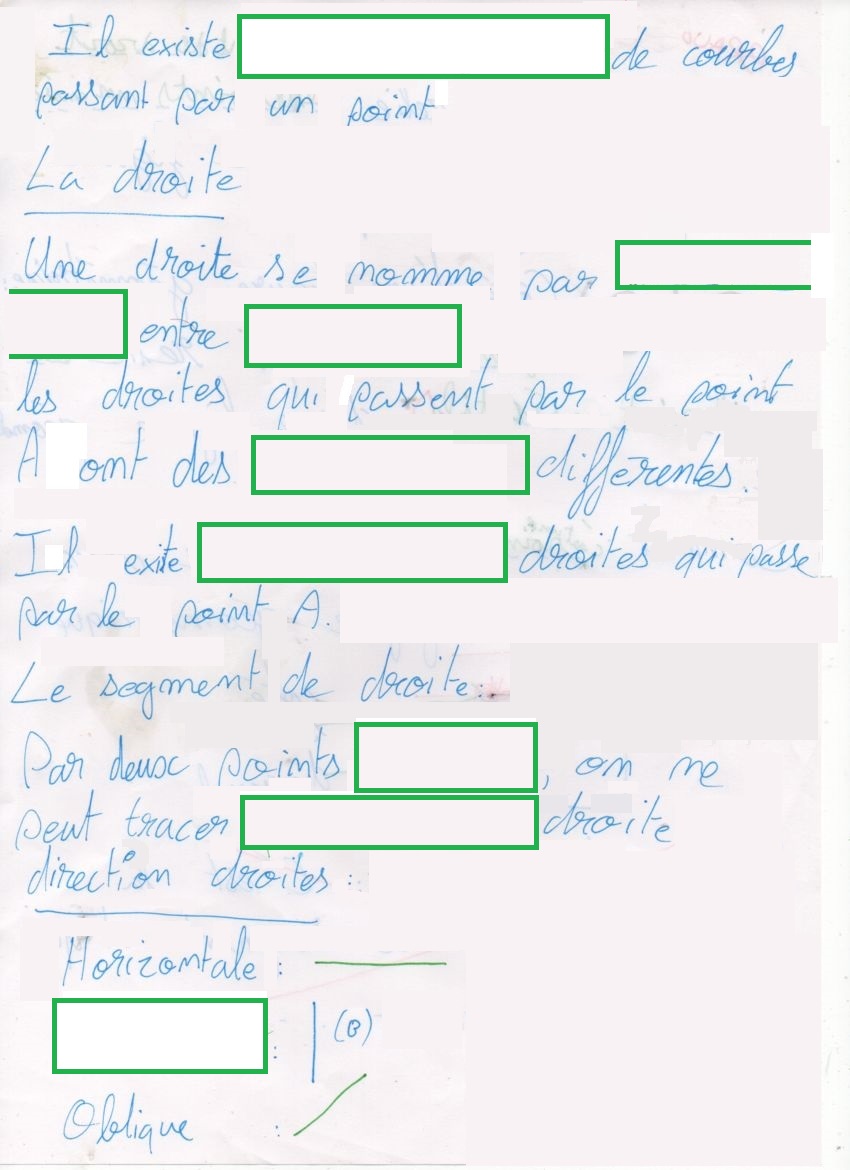 Il existe de courbes
passant par un point
La droite
Une droite se nomme par
entre
les droites qui passent par le point
A ont des différentes.
Il exite droites qui passe
par le point A.
Le segment de droite:
Par deux points , on ne
peut tracer droite
direction droites :
Horizontale :
: (B)
Oblique :